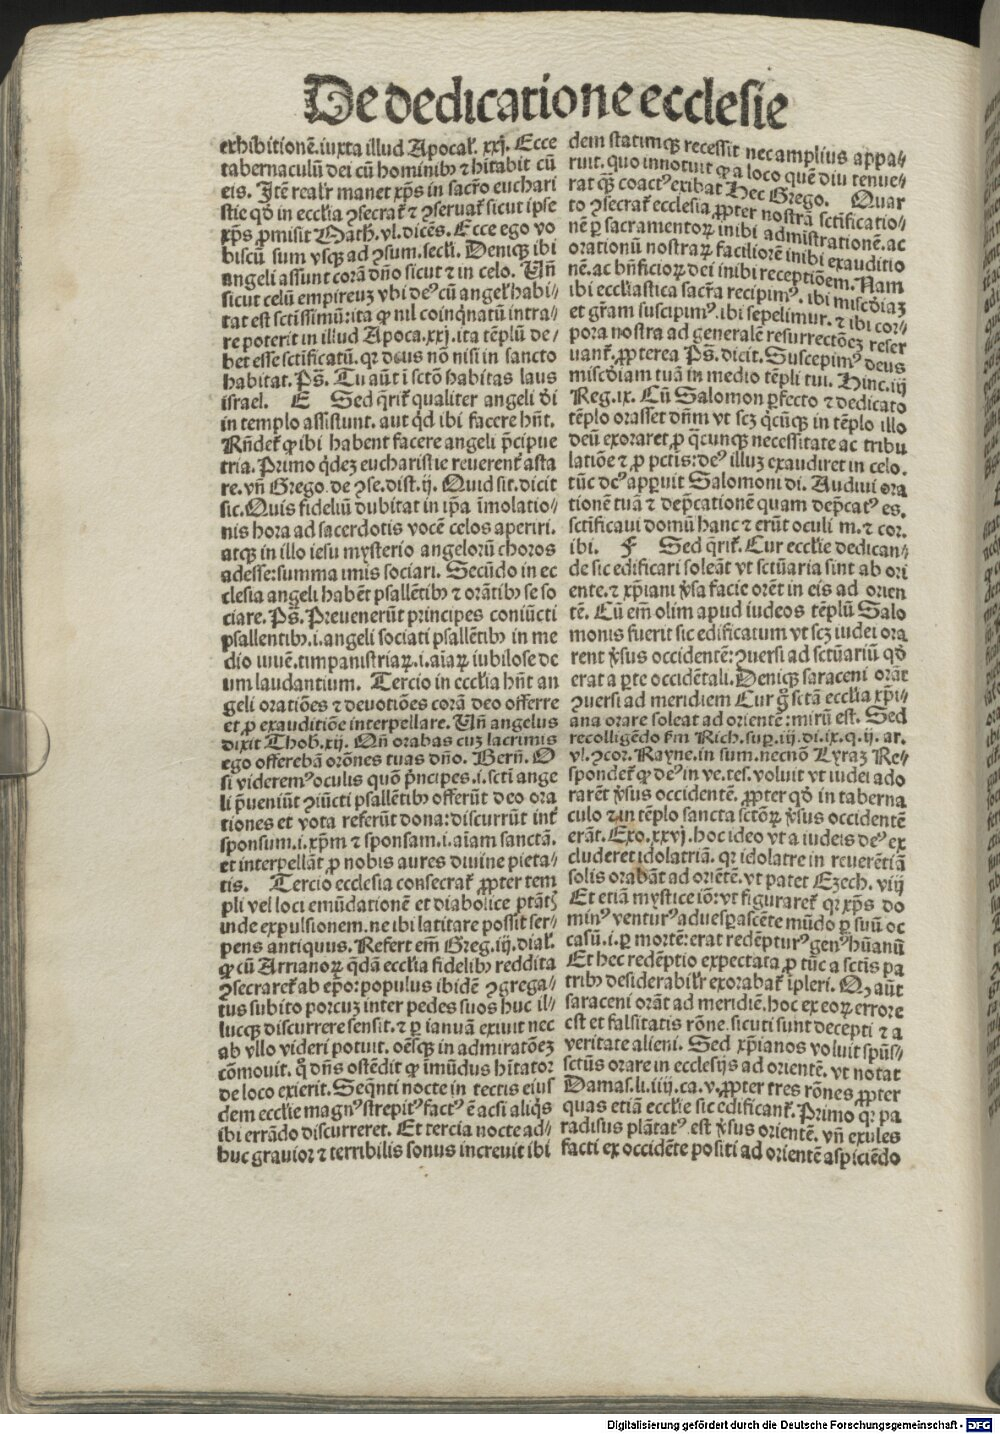 De dedicatione ecclesie
exhibitionē. iuxta illud Apocal̄. xxj. Ecce
tabernaculū dei cū hominibꝰ ⁊ hītabit cū
eis. Jtē realr̄ manet xp̄s in sacr̄o euchari
stie qđ in eccl̄ia ꝯsecrat̄ ⁊ ꝯseruat̄ sicut ipse
xp̄s ꝓmisit Math. vl. dicēs. Ecce ego vo
biscū sum vsqꝫ ad ꝯsum. secl̄i. Deniqꝫ ibi
angeli assunt corā dn̄o sicut ⁊ in celo. Vn̄
sicut celū empireuꝫ vbi deꝰ cū angel̄ habi⸗
tat est sctīssimū: ita ꝙ nil coinq̇natū intra⸗
re poterit in illud Apoca. xxj. ita tēplū de⸗
bet esse sctīficatū. qꝛ deus nō nisi in sancto
habitat. Ps̄. Tu aūt ī sctō habitas laus
israel. E Sed q̄rit̄ qualiter angeli dī
in templo assistunt. aut qd̄ ibi facere hn̄t.
Rn̄det̄ ꝙ ibi habent facere angeli p̄cipue
tria. Primo q̇deꝫ eucharistie reuerent̄ asta
re. vn̄ Grego. de ꝯse. dist. ij. Quid sit. dicit
sic. Quis fideliū dubitat in ip̄a īmolatio⸗
nis hora ad sacerdotis vocē celos aperiri.
atqꝫ in illo iesu mysterio angelorū choros
adesse: summa imis sociari. Secūdo in ec
clesia angeli habēt psallētibꝰ ⁊ orātibꝰ se so
ciare. Ps̄. Preuenerūt principes coniūcti
psallentibꝰ. i. angeli sociati psallētibꝰ in me
dio iuuē. timpanistriaꝝ. i. aīaꝝ iubilose de
um laudantium. Tercio in eccl̄ia hn̄t an
geli oratiōes ⁊ deuotiōes corā deo offerre
et ꝓ exauditiōe interpellare. Vn̄ angelus
dixit Thob. xij. Qn̄ orabas cuꝫ lacrimis
ego offerebā orōnes tuas dn̄o. Bern̄. O
si videremꝰ oculis quō p̄ncipes. i. scti ange
li p̄ueniūt ꝯiūcti psallētibꝰ offerūt deo ora
tiones et vota referūt dona: discurrūt int̄
sponsum. i. xp̄m ⁊ sponsam. i. aīam sanctā.
et interpellāt ꝓ nobis aures diuine pieta⸗
tis. Tercio ecclesia consecrat̄ ꝓpter tem
pli vel loci emūdationē et diabolice ptāt̄ꝭ
inde expulsionem. ne ibi latitare possit ser⸗
pens antiquus. Refert em̄ Greg. iij. dial̄.
ꝙ cū Arrianoꝝ q̄dā eccl̄ia fidelibꝰ reddita
ꝯsecraret̄ ab ep̄o: populus ibidē ꝯgrega⸗
tus subito porcuꝫ inter pedes suos huc il⸗
lucqꝫ discurrere sensit. ⁊ ꝑ ianuā exiuit nec
ab vllo videri potuit. oēsqꝫ in admiratōeꝫ
cōmouit. q̇ dn̄s ostēdit ꝙ īmūdus hītator
de loco exierit. Seq̄nti nocte in tectis eius
dem eccl̄ie magnꝰ strepitꝰ factꝰ ē acsi aliq̇s
ibi errādo discurreret. Et tercia nocte ad⸗
huc grauior ⁊ terribilis sonus increuit ibi
dem statimqꝫ recessit nec amplius appa⸗
ruit. quo innotuit ꝙ a loco quē diu tenue⸗
rat qꝫ coactꝰ exibat Hec Grego. Quar
to ꝯsecrat̄ ecclesia ꝓpter nostrā sctīficatio⸗
nē ꝑ sacramentoꝝ inibi admīstrationē. ac
orationū nostraꝝ faciliorē inibi exauditio
nē. ac bn̄ficioꝝ dei inibi receptiōem. Nam
ibi eccl̄iastica sacr̄a recipimꝰ. ibi miscd̄iaꝫ
et gr̄am suscipimꝰ. ibi sepelimur. ⁊ ibi cor⸗
pora nostra ad generalē resurrectōeꝫ reser
uant̄. ꝓpterea Ps̄. dicit. Suscepimꝰ deus
miscd̄iam tuā in medio tēpli tui. Hinc. iij
Reg. ix. Cū Salomon ꝑfecto ⁊ dedicato
tēplo orasset dn̄m vt scꝫ q̇cūqꝫ in tēplo illo
deū exoraret ꝓ q̄cunqꝫ necessitate ac tribu
latiōe ⁊ ꝓ pctis: deꝰ illuꝫ exaudiret in celo.
tūc deꝰ apꝑuit Salomoni di. Audiui ora
tionē tuā ⁊ dep̄cationē quam dep̄catꝰ es.
sctīficaui domū hanc ⁊ erūt oculi m. ⁊ cor.
ibi. F Sed q̄rit̄. Cur eccl̄ie dedican⸗
de sic edificari soleāt vt sctūaria sint ab ori
ente. ⁊ xp̄iani v̓sa facie orēt in eis ad orien
tē. Cū em̄ olim apud iudeos tēplū Salo
monis fuerit sic edificatum vt scꝫ iudei ora
rent v̓sus occidentē: ꝯuersi ad sctūariū qđ
erat a ꝑte occidētali. Deniqꝫ saraceni orāt
ꝯuersi ad meridiem Cur g̊ sctā eccl̄ia xp̄i⸗
ana orare soleat ad orientē: mirū est. Sed
recolligēdo ẜm Rich. suꝑ. iij. di. ix. q. ij. ar.
vl. ꝯcor. Rayne. in sum. necnō Lyraꝫ Re⸗
spondet̄ ꝙ deꝰ in ve. tes. voluit vt iudei ado
rarēt v̓sus occidentē. ꝓpter qđ in taberna
culo ⁊ in tēplo sancta sctōꝝ v̓sus occidentē
erāt. Exo. xxvj. hoc ideo vt a iudeis deꝰ ex
cluderet idolatriā. qꝛ idolatre in reuerētiā
solis orabāt ad oriētē. vt patet Ezech. viij
Et etiā mystice iō: vt figuraret̄ qꝛ xp̄s do
minꝰ venturꝰ aduesꝑascēte mūdo ꝑ suū oc
casū. i. ꝑ mortē: erat redēpturꝰ genꝰ hūanū
Et hec redēptio expectata ꝓ tūc a sctīs pa
tribꝰ desiderabilr̄ exorabat̄ īpleri. Qꝫ aūt
saraceni orāt ad meridiē. hoc ex eoꝝ errore
est et falsitatis rōne. sicuti sunt decepti ⁊ a
veritate alieni. Sed xp̄ianos voluit spūs⸗
sctūs orare in ecclesijs ad orientē. vt notat
Damas. li. iiij. ca. v. ꝓpter tres rōnes ꝓpter
quas etiā eccl̄ie sic edificant̄. Primo qꝛ pa
radisus plātatꝰ est v̓sus orientē. vn̄ exules
facti ex occidēte positi ad orientē aspiciēdo
Digitalisierung gefördert durch die Deutsche Forschungsgemeinschaft - DFG